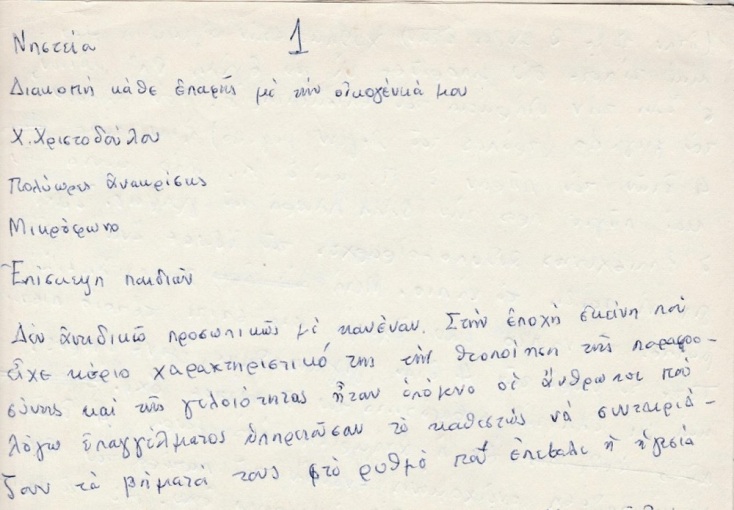 1
Νηστεία
Διακοπή κάθε ἐπαφῆς μέ τήν οἰκογένειά μου
Χ. Χριστοδούλου
Πολύωρες ἀνακρίσεις
Μικρόφωνο
Ἐπίσκεψη παιδιῶν
Δέν ἀντιδικῶ προσωπικῶς μέ κανέναν. Στήν ἐποχή ἐκείνη πού
εἶχε κύριο χαρακτηριστικό της τήν θεοποίηση τῆς παραφρο-
σύνης καί τῆς γελοιότητας ἦταν ἑπόμενο οἱ ἄνθρωποι πού
λόγω ἐπαγγέλματος ὑπηρετοῦσαν τό καθεστώς νά συνταιριά-
ζουν τά βήματά τους στό ρυθμό πού ἐπέβαλε ἡ ἡγεσία